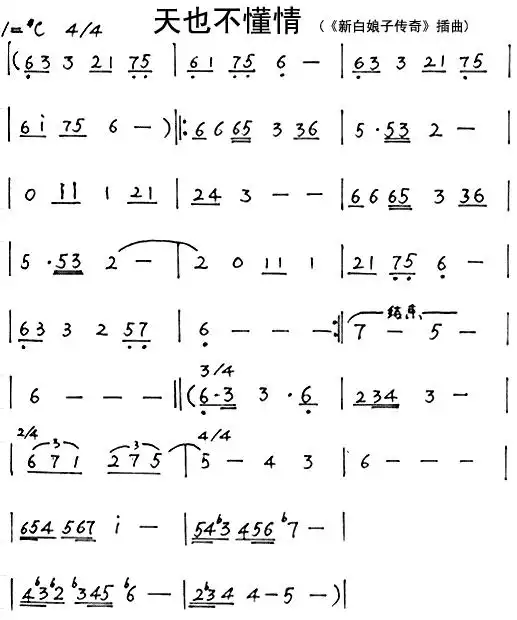 1=#C 4/4 天也不懂情 (《新白娘子传奇》插曲)
|(63 3 21 75 | 61 75 6 — | 63 3 21 75 |
| 6i 75 6 — )||: 6 6 65 3 36 | 5 · 53 2 — |
| 0 11 1 21 | 24 3 — — | 6 6 65 3 36 |
| 5 · 53 2 — | 2 0 11 1 | 21 75 6 — |
| 63 3 2 57 | 6 — — — :|| 7 — 结束 5 — |
3/4
| 6 — — — ||(6·3 3 · 6 | 234 3 — |
2/4 3 3 4/4
| 671 275 | 5 — 4 3 | 6 — — — |
| 654 567 i — | 54b3 456 b7 — |
| 4b3b2 b345 b6 — | 2b34 4 — 5 — )|